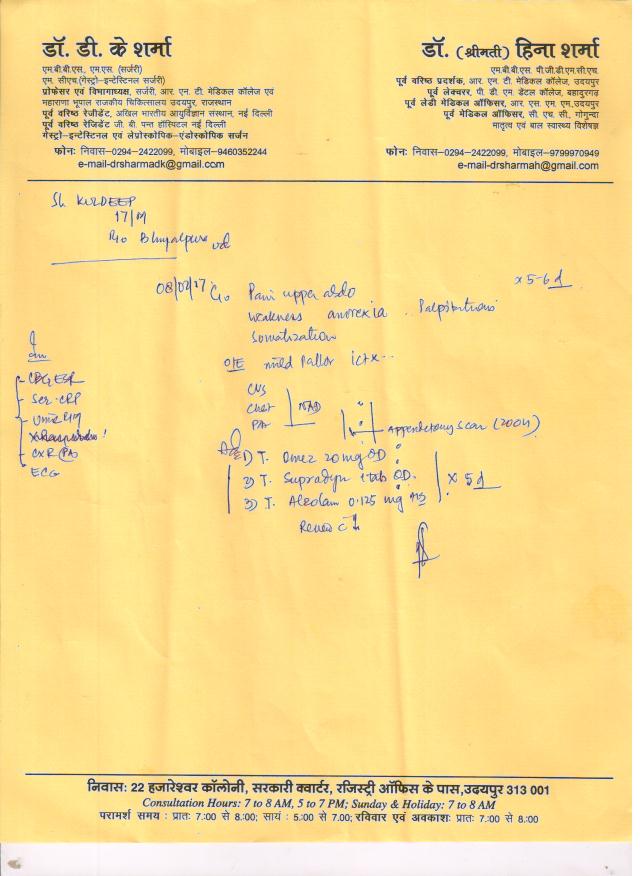 डॉ. डी. के शर्मा
एम.बी.बी.एस., एम.एस. (सर्जरी)
एम. सीएच.(गेस्ट्रो-इन्टेस्टिनल सर्जरी)
प्रोफेसर एवं विभागाध्यक्ष, सर्जरी, आर. एन. टी. मेडिकल कॉलेज एवं
महाराणा भूपाल राजकीय चिकित्सालय उदयपुर, राजस्थान
पूर्व वरिष्ठ रेजीडेंट, अखिल भारतीय आयुर्विज्ञान संस्थान, नई दिल्ली
पूर्व वरिष्ठ रेजिडेंट जी. बी. पन्त हॉस्पिटल नई दिल्ली
गेस्ट्रो-इन्टेस्टिनल एवं लेप्रोस्कोपिक-एंडोस्कोपिक सर्जन
फोन: निवास-0294-2422099, मोबाइल-9460352244
e-mail-drsharmadk@gmail.com
डॉ. (श्रीमती) हिना शर्मा
एम.बी.बी.एस. पी.जी.डी.एम.सी.एच.
पूर्व वरिष्ठ प्रदर्शक, आर. एन. टी. मेडिकल कॉलेज, उदयपुर
पूर्व लेक्चरर, पी. डी. एम. डेंटल कॉलेज, बहादुरगढ़
पूर्व लेडी मेडिकल ऑफिसर, आर. एस. एम. एम.,उदयपुर
पूर्व मेडिकल ऑफिसर, सी. एच. सी., गोगुन्दा
मातृत्व एवं बाल स्वास्थ्य विशेषज्ञ
फोन: निवास-0294-2422099, मोबाइल-9799970949
e-mail-drsharmah@gmail.com
Sh. KULDEEP
17/M
R/o Bhupalpura
08/02/17 C/o Pain upper abdo x 5-6 d
weakness anorexia Palpitations
Somatization
O/E mild Pallor
CBC ESR
Ser. CRP
Urine R/M
CXR (PA)
ECG
CNS
Chest NAD
PA
Appendectomy Scar (2004)
1) T. Omez 20 mg OD
2) T. Supradyn 1 tab OD. x 5 d
3) T. Alzolam 0.125 mg
Review c
निवास: 22 हजारेश्वर कॉलोनी, सरकारी क्वार्टर, रजिस्ट्री ऑफिस के पास,उदयपुर 313 001
Consultation Hours: 7 to 8 AM, 5 to 7 PM; Sunday & Holiday: 7 to 8 AM
परामर्श समय : प्रातः 7.:00 से 8.:00; सायं : 5.:00 से 7.00; रविवार एवं अवकाशः प्रातः 7.:00 से 8.:00